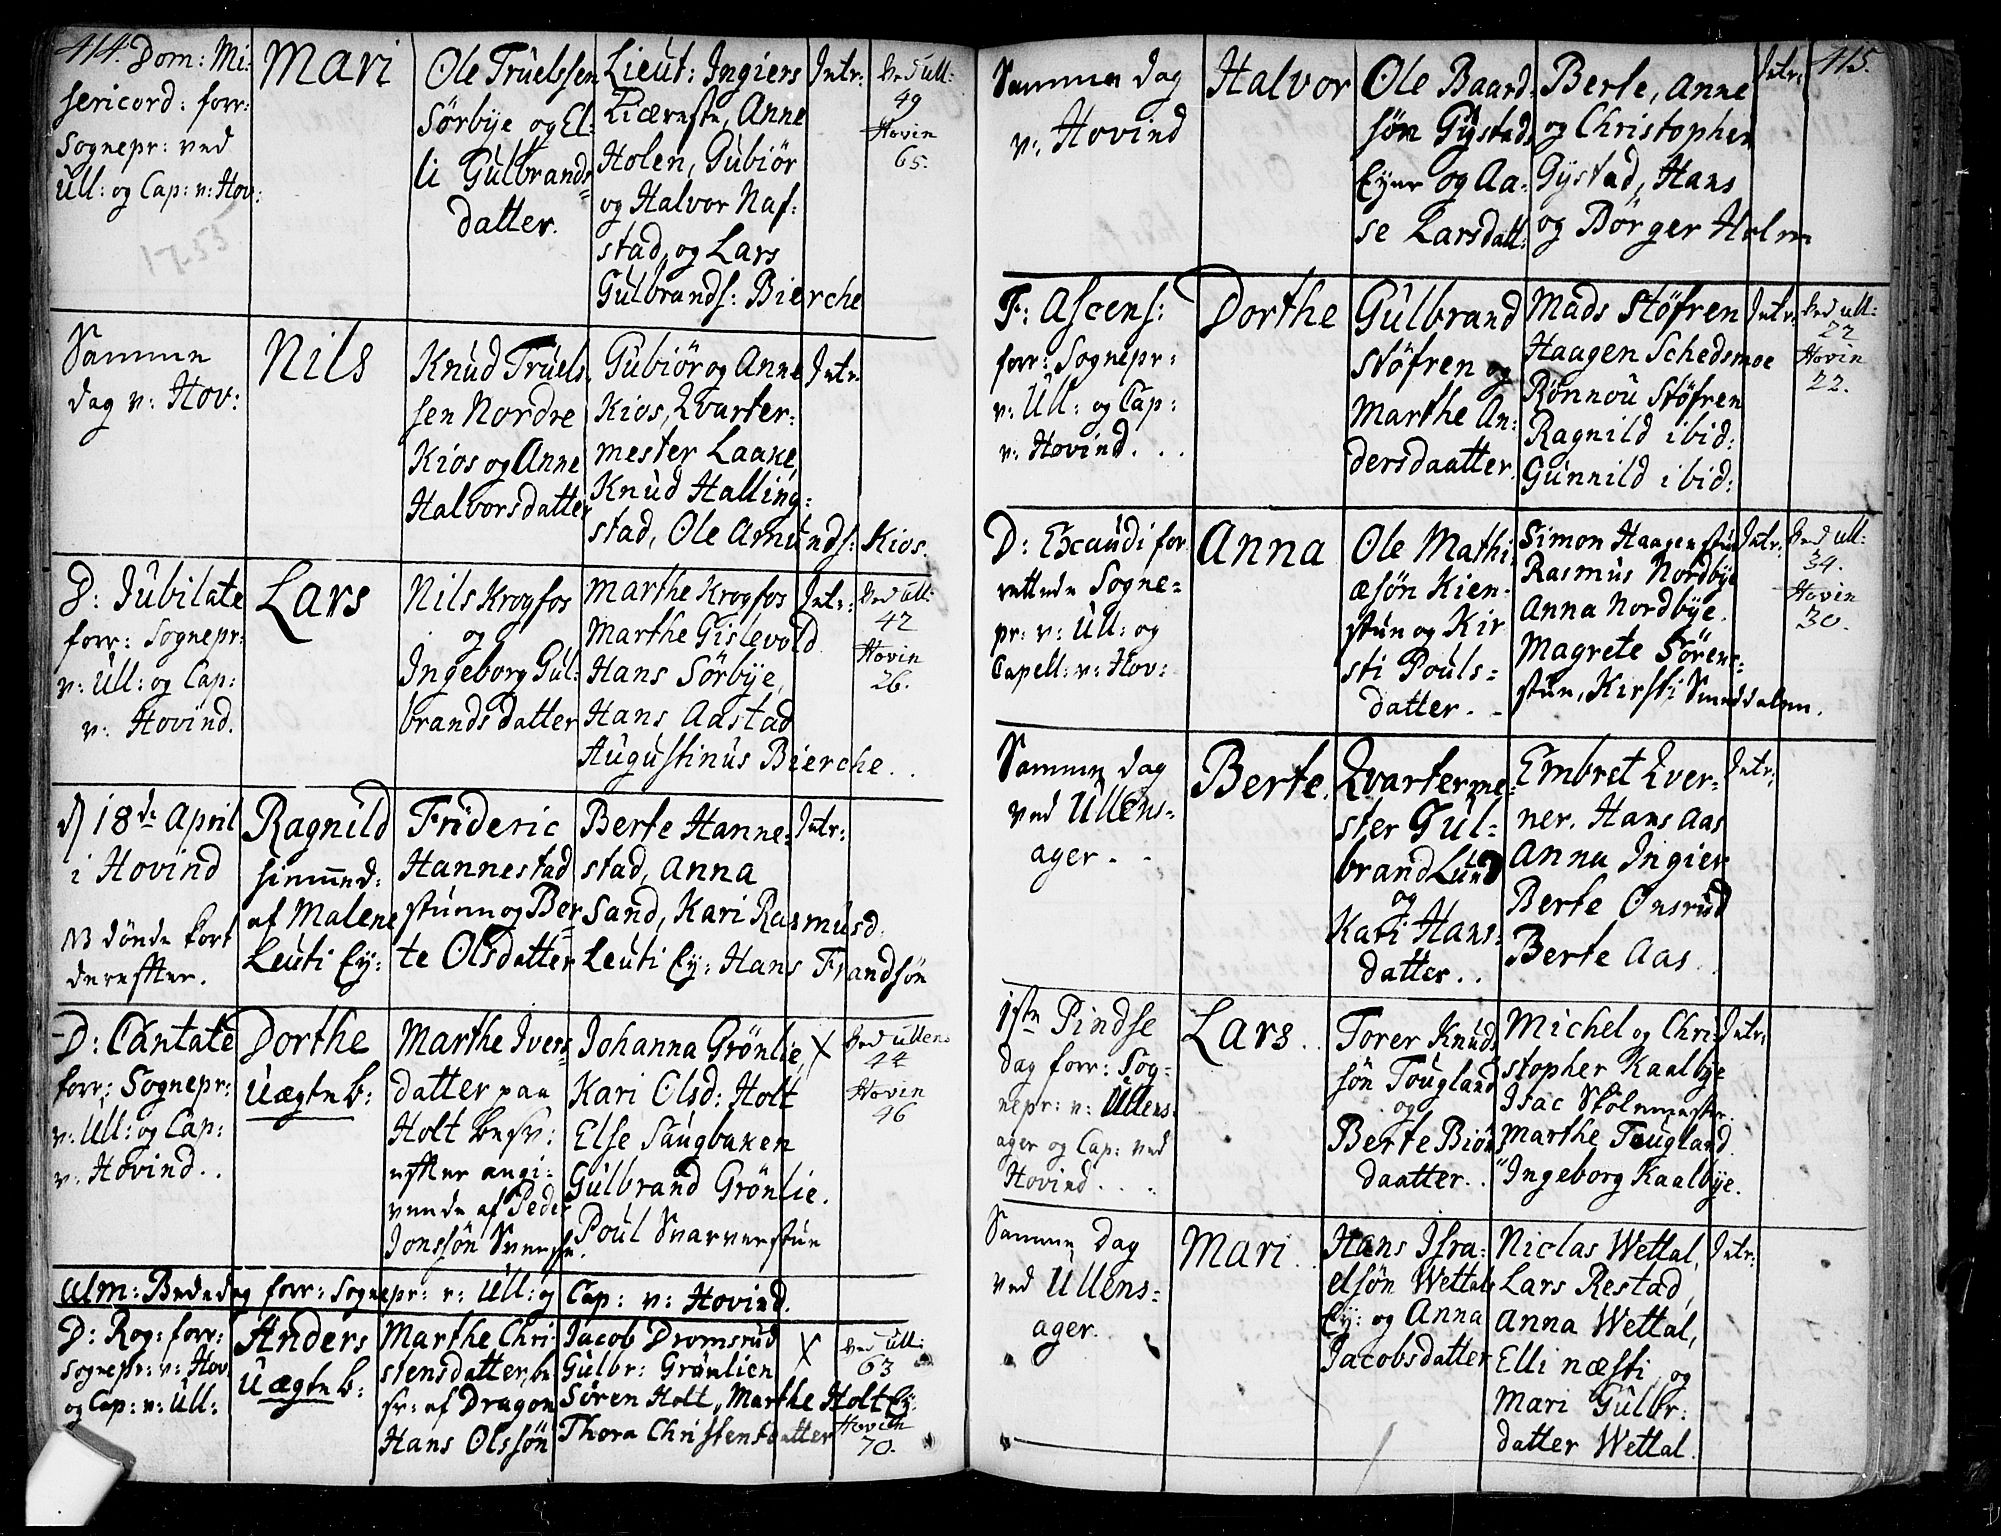 414. Dom: Mi-
sericord: forr:
Sognepr: ved
Ull: og Cap: v: Hov:
1753
Mari
Ole Truelssen
Sörbye og El-
li Gulbrands-
datter.
Lieut: Ingiers
Kiæreste, Anne
Holen, Gubiör
og Halvor Naf-
stad, og Lars
Gulbrands: Bierche
Intr:
Ved Ull:
49
Hovin
65.
Samme
dag v: Hov:
Nils
Knud Truels
sen Nordre
Kios og Anne
Halvorsdatter
Gubiör og Anne
Kios, Qvarter-
mester Laake,
Knud Halling-
stad, Ole Amunds: Kios.
Intr.
D: Jubilate
forr: Sognepr:
v: Ull: og Cap:
v: Hovind.
Lars
Nils Krogfos
og
Ingeborg Gul-
brandsdatter
Marthe Krogfos
Marthe Gislevold
Hans Sörbye,
Hans Aastad
Augustinus Bierche..
Intr:
Ved Ull:
42
Hovin
26.
d 18de April
i Hovind
NB döde kort
derefter.
Ragnild
af Malene
Leuti Ey:
Frideric
Hannestad
stuen og Ber-
te Olsdatter
Berte Hanne-
stad, Anna
Sand, Kari Rasmusd.
Leuti Ey: Hans Frandsön
Intr:
D: Cantate
forr: Sognepr:
v: Ull: og Cap:
v: Hovind..
Dorthe
Uægte b:
Marthe Ivers-
datter paa
Holt besv:
efter angi-
vende af Peder
Jonssön Svense.
Johanna Grönlie,
Kari Olsd: Holt
Else Saugbaken
Gulbrand Grönlie.
Poul Svarverstuen
X
Ved Ullens
44
Hovin
46
Alm: Bededag forr: Sognepr: v: Ull: og Cap: v: Hovind.
D: Rog: forr:
sognepr: v: Hov
og Cap: v: Ull:
Anders
Uægte b:
Marthe Chri
stensdatter, be
sv: af Dragon
Hans Olssön
Jacob Dromsrud
Gulbr: Grönlien
Sören Holt, Marthe Holt Ey:
Thora Christensdatter
X
Ved Ull:
63
Hovin
70.
415.
Samme dag
v: Hovind
Halvor
Ole Baard-
sön Gystad
Eyer og Aa-
se Larsdatt:
Berte, Anne
og Christopher
Gystad, Hans
og Börger Holm
Intr:
F: Ascens:
forr: Sognepr:
v: Ull: og Cap:
v: Hovind...
Dorthe
Gulbrand
Stöfren og
Marthe An-
dersdaatter.
Mads Stöfren
Haagen Schedsmoe
Rönnou Stöfren
Ragnild ibid:
Gunnild ibid:
Intr:
Ved Ull:
22
Hovin
22.
D: Exaudi for
rettede Sogne-
pr: v: Ull: og
Capell: v: Hov:
Anna
Ole Mathi
æsön Kien-
stuen og Kir
sti Pouls-
datter.
Simon Haagenstuen
Rasmus Nordbye
Anna Nordbye.
Magrete Sörens-
stuen, Kirsti Smeddalen.
Intr:
Ved Ull:
34.
Hovin
30.
Samme dag
ved Ullens-
ager
Berte.
Qvarterme-
ster Gul-
brand Lund
og
Kari Hans-
datter..
Embret Qver-
ner. Hans Aas
Anna Ingier
Berte Onsrud
Berte Aas
Intr:
1ste Pindse
dag forr: Sog-
nepr: v: Ullens-
ager og Cap: ved
Hovind...
Lars.
Torer Knud
sön Tougland
og
Berte Biön
daatter..
Michel og Chri-
stopher Kaalbye
Isac Skolemester
Marthe Tougland.
Ingeborg Kaalbye.
Intr:
Samme dag
ved Ullens-
ager.
Mari.
Hans Isra-
elsön Wettal
Ey: og Anna
Jacobsdatter
Niclas Wettal,
Lars Restad,
Anna Wettal,
Elli næsti, og
Mari Gulbr:
datter Wettal.
Intr: